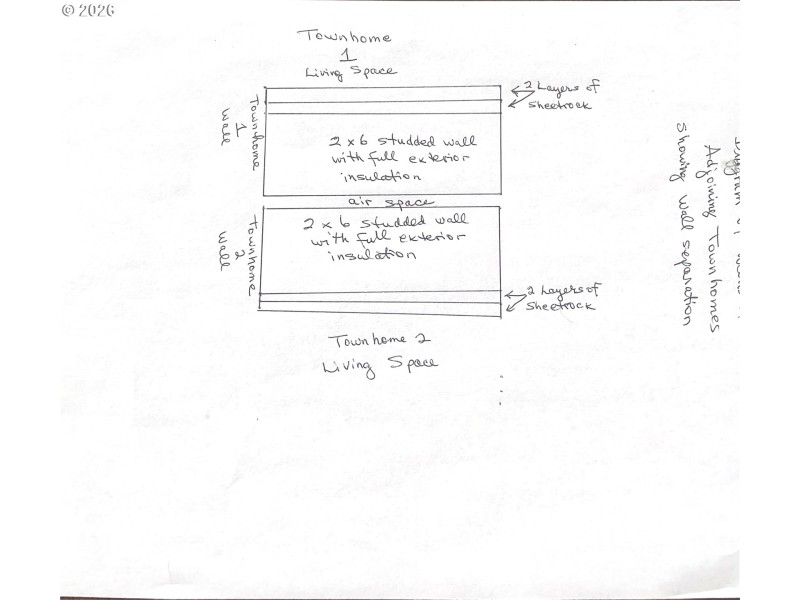 © 2026
Townhome
1
Living Space
2 Layers of
Sheetrock
Townhome
1
Wall
2 x 6 studded wall
with full exterior
insulation
air space
Townhome
2
Wall
2 x 6 studded wall
with full exterior
insulation
2 Layers of
Sheetrock
Townhome 2
Living Space
Adjoining Townhomes
Showing wall separation